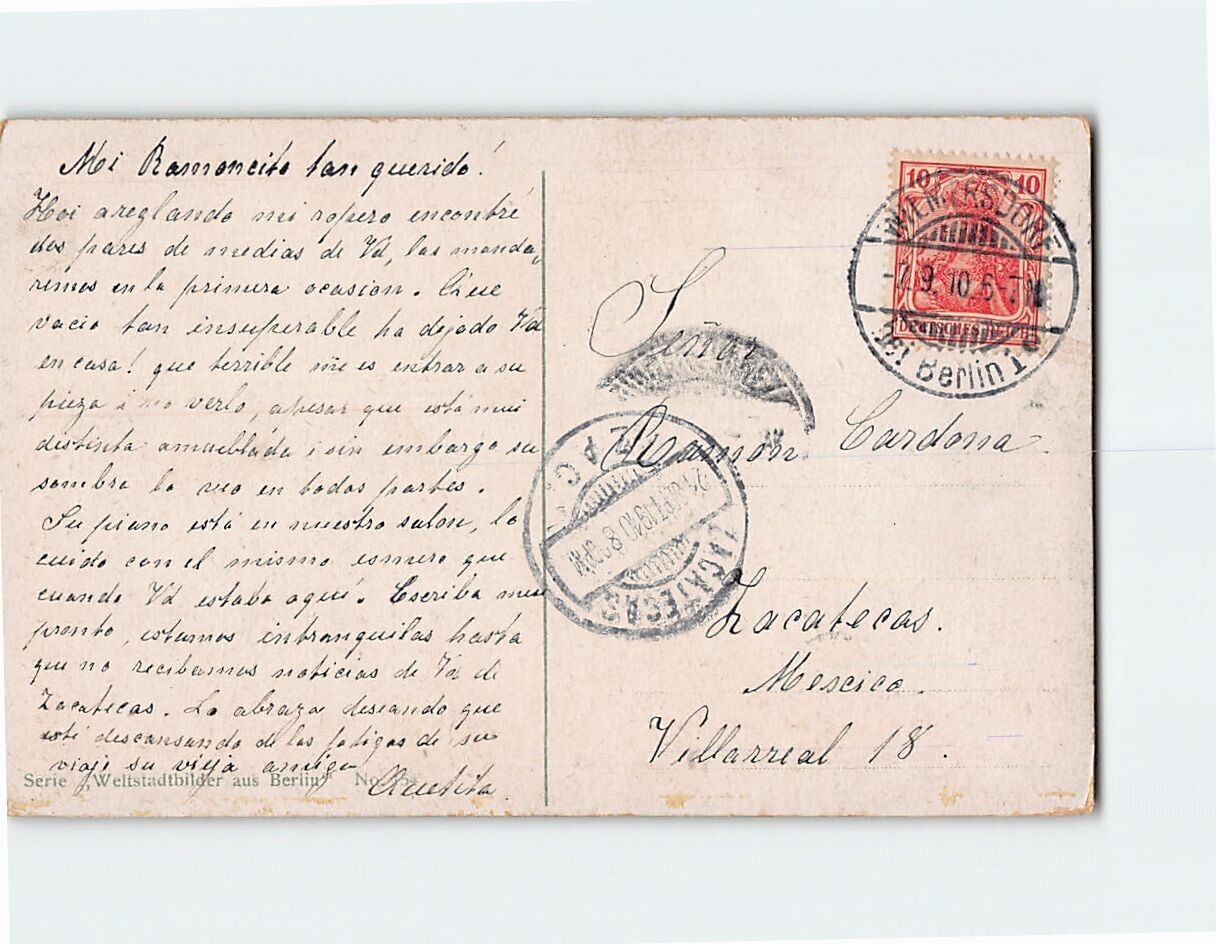 Moi Ramoncito tan querido!
Hoi areglando mi ropero encontré
dos pares de medias de Vd, las manda,
remos en la primera ocasion. Que
vacio tan insuperable ha dejado Vd
en casa! que terrible me es entrar a su
pieza i no verlo, apesar que está mui
distinta amueblada i sin embargo su
sombra la veo en todas partes.
Su piano está en nuestro salon, lo
cuido con el mismo esmero que
cuando Vd estaba aquí. Escriba mui
pronto, estamos intranquilas hasta
que no recibamos noticias de Vd de
Zacatecas. Lo abraza deseando que
esté descansando de las fatigas de su
viaje su vieja amiga
Serie „Weltstadtbilder aus Berlin" No.
10 10
DEUTSCHES REICH
WILMERSDORF
7.9.10.6-7N
bei Berlin
Señor
Ramón Cardona
ZACATECAS
ZAC
Zacatecas.
Mescico.
Villarreal 18.